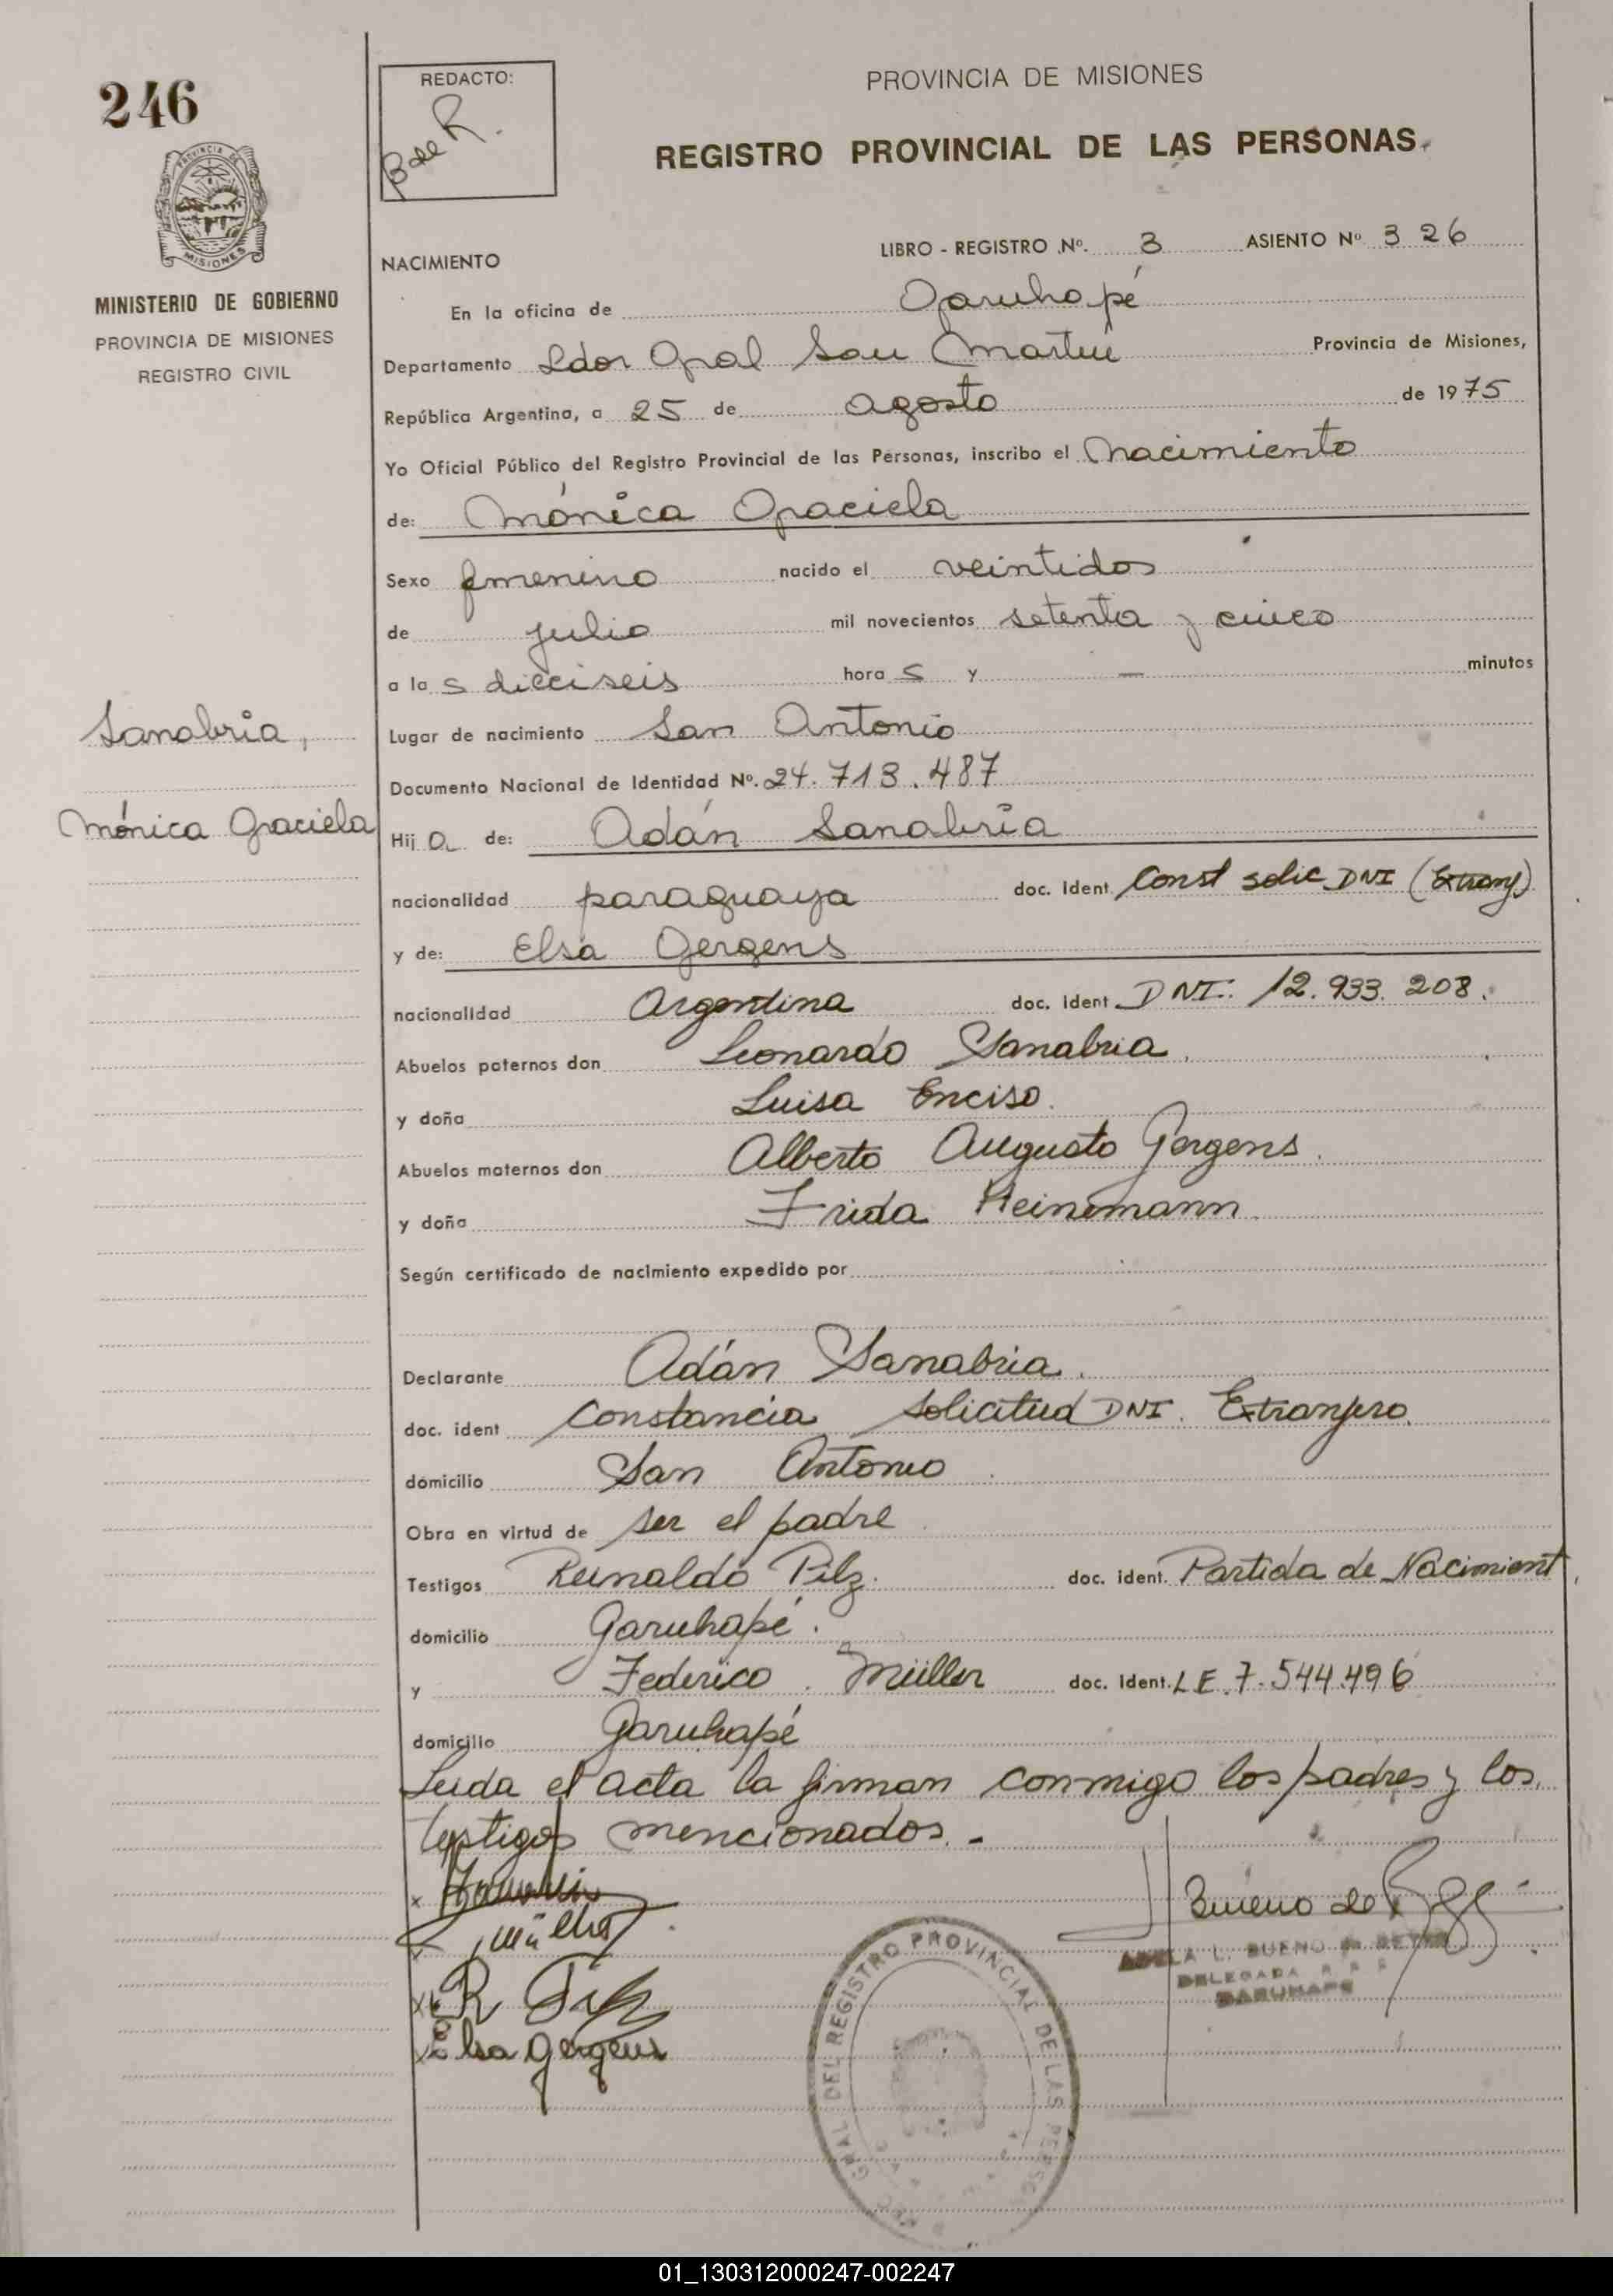 246
REDACTO:
B de R.
PROVINCIA DE MISIONES
REGISTRO PROVINCIAL DE LAS PERSONAS
PROVINCIA DE
MISIONES
MINISTERIO DE GOBIERNO
PROVINCIA DE MISIONES
REGISTRO CIVIL
LIBRO - REGISTRO Nº. 3 ASIENTO Nº 326
NACIMIENTO
En la oficina de Garuhapé
Departamento Ldor Gral San Martín Provincia de Misiones,
República Argentina, a 25 de agosto de 1975
Yo Oficial Público del Registro Provincial de las Personas, inscribo el Nacimiento
de: Mónica Graciela
Sexo femenino nacido el veintidos
de julio mil novecientos setenta y cinco
a las dieciseis horas y — minutos
Sanabria,
Lugar de nacimiento San Antonio
Documento Nacional de Identidad Nº. 24.713.487
Mónica Graciela
Hija de: Adán Sanabria
nacionalidad paraguaya doc. Ident. Const solic DNI (Extranj)
y de: Elsa Gergens
nacionalidad Argentina doc. Ident. DNI. 12.933.208.
Abuelos paternos don Leonardo Sanabria.
y doña Luisa Enciso.
Abuelos maternos don Alberto Augusto Gergens.
y doña Frida Heinemann.
Según certificado de nacimiento expedido por
Declarante Adán Sanabria.
doc. ident Constancia solicitud DNI. Extranjero.
domicilio San Antonio.
Obra en virtud de ser el padre.
Testigos Reinaldo Pilz. doc. ident. Partida de Nacimient
domicilio Garuhapé.
y Federico Müller doc. Ident. LE. 7.544.496
domicilio Garuhapé
Leida el acta la firman conmigo los padres y los
testigos mencionados. -
Müller
Bueno de
Elsa Gergens
L. BUENO de REYES
DELEGADA R P P
GARUHAPE
GRAL DEL REGISTRO PROVINCIAL DE LAS PERSO
01_130312000247-002247